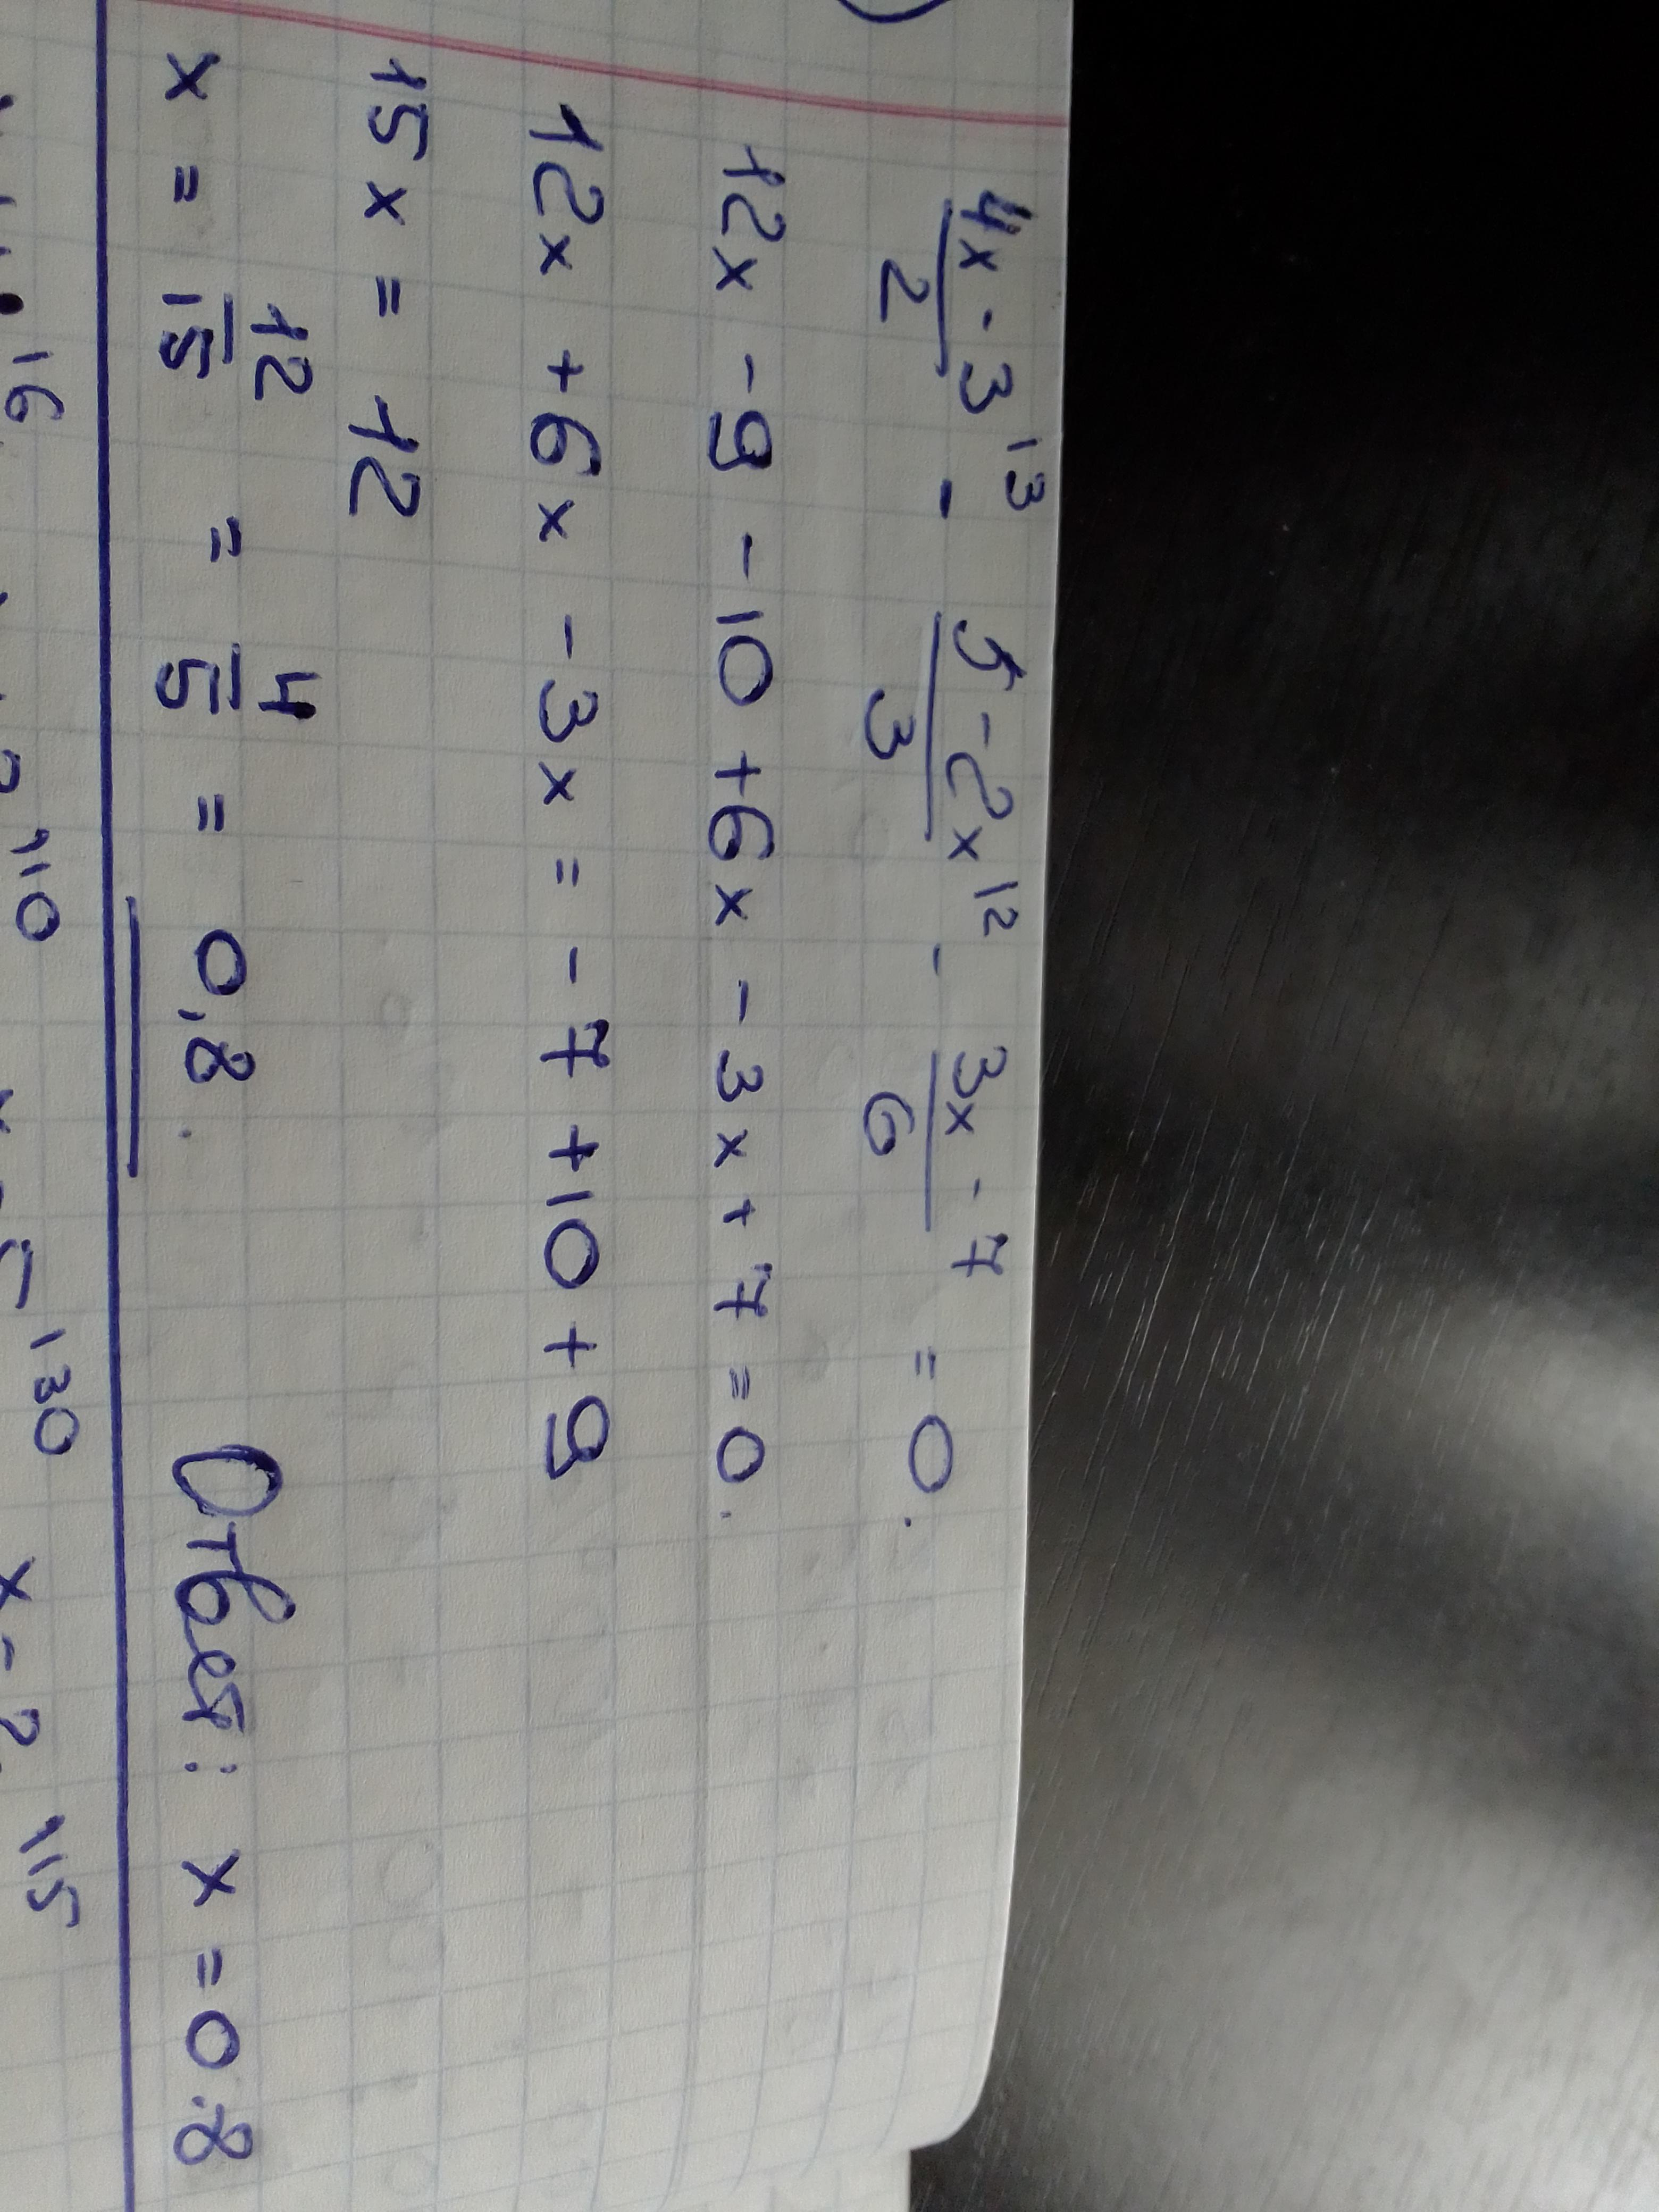 4x - 3 |3 / 2 - 5 - 2x |2 / 3 - 3x - 7 / 6 = 0.
12x - 9 - 10 + 6x - 3x + 7 = 0.
12x + 6x - 3x = - 7 + 10 + 9
15x = 12
x = 12/15 = 4/5 = 0,8. Ответ: x = 0.8